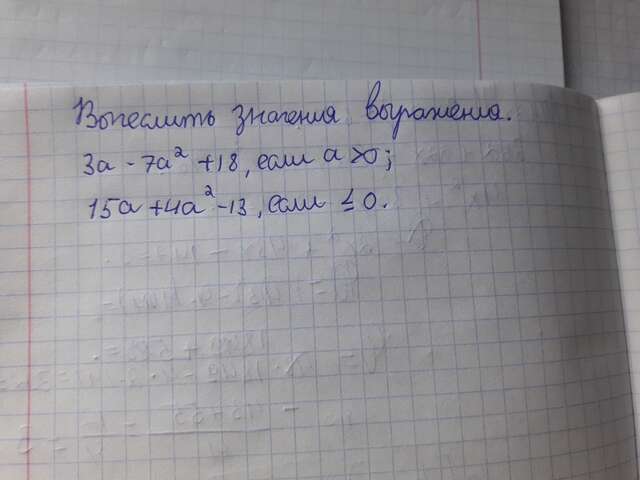 Вычислить значения выражения.
3a - 7a² + 18, если a > 0;
15a + 4a² - 13, если ≤ 0.